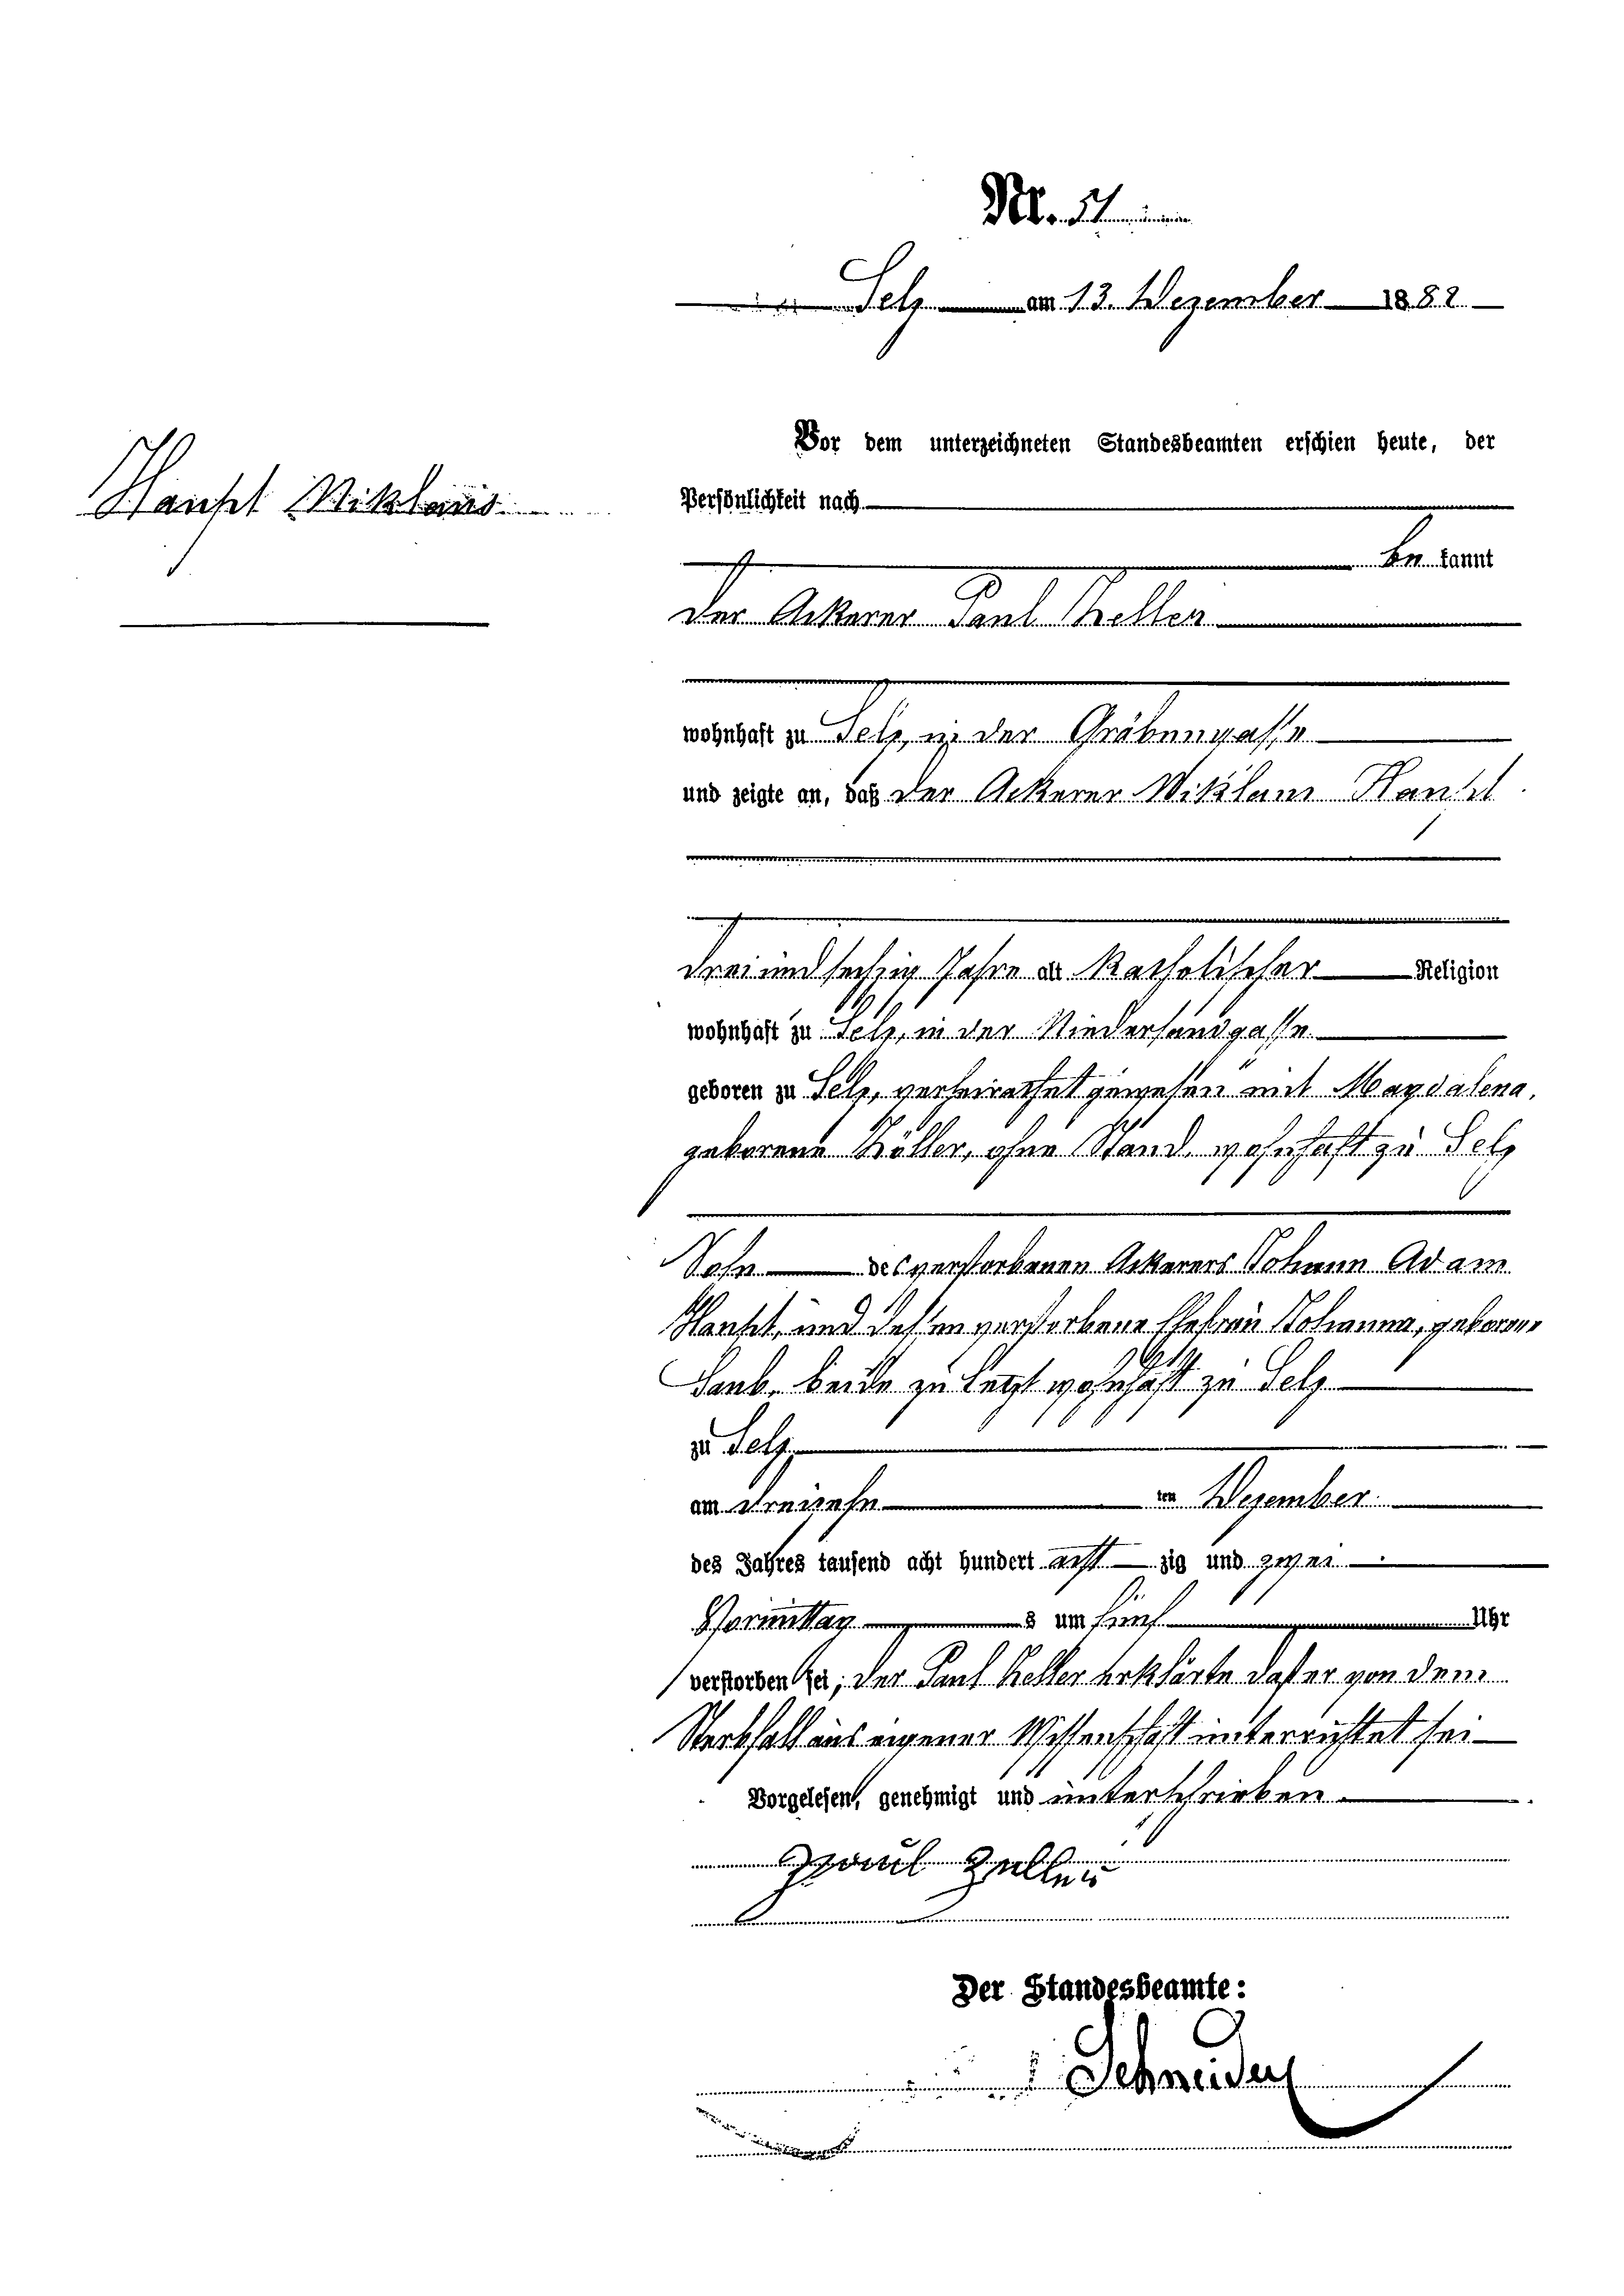 Nr. 51
Selz am 13. Dezember 1882
Haupt Niklaus
Vor dem unterzeichneten Standesbeamten erschien heute, der
Persönlichkeit nach
be kannt
der Ackerer Paul Heller
wohnhaft zu Selz, in der Gräbengasse
und zeigte an, daß der Ackerer Niklaus Haupt
dreiundsechzig Jahre alt katholischer Religion
wohnhaft zu Selz, in der Niedersandgasse
geboren zu Selz, verheirathet gewesen mit Magdalena,
geborene Höller, ohne Stand, wohnhaft zu Selz
Sohn des verstorbenen Ackerers Johann Adam
Haupt, und dessen verstorbene Ehefrau Johanna, geborene
beide zu letzt wohnhaft zu Selz
zu Selz
am dreizehn ten Dezember
des Jahres tausend acht hundert acht zig und zwei
Vormittag s um fünf Uhr
verstorben sei; der Paul Heller erklärte daß er von dem
Sterbfall aus eigener Wissenschaft unterrichtet sei
Vorgelesen, genehmigt und unterschrieben
Paul
Der Standesbeamte:
Schneider